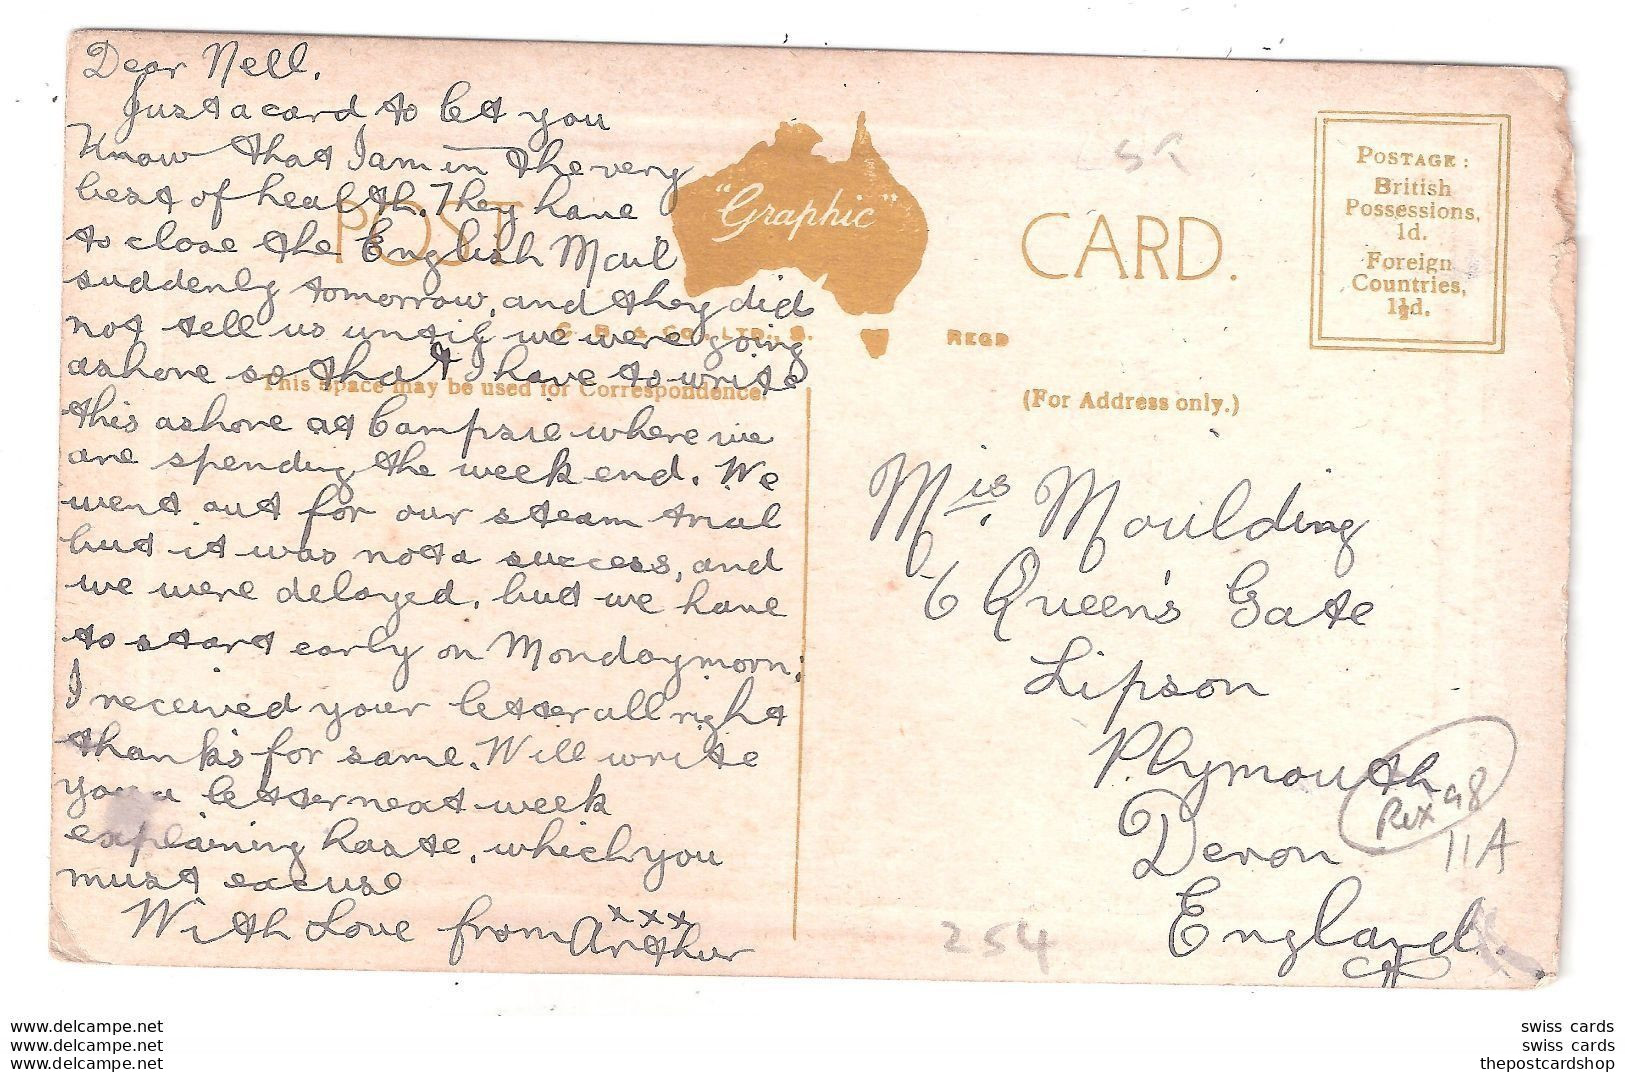 Dear Nell,
Just a card to let you
know that I am in the very
best of health. They have
to close the English Mail
suddenly tomorrow, and they did
not tell us until we were going
ashore so that I have to write
this ashore at Campsie where we
are spending the week end. We
went out for our steam trial
but it was not a success, and
we were delayed, but we have
to start early on Monday morn.
I received your letter all right
thanks for same. Will write
you a letter next week
explaining haste, which you
must excuse
With Love from Arthur
xxx
POST CARD.
"Graphic"
LTD., S.
REGD
This space may be used for Correspondence.
(For Address only.)
POSTAGE:
British
Possessions,
1d.
Foreign
Countries,
1½d.
Mis Moulding
6 Queen's Gate
Lipson
Plymouth
Devon
England.
Rex 98
11A
254
www.delcampe.net
www.delcampe.net
www.delcampe.net
swiss cards
swiss cards
thepostcardshop